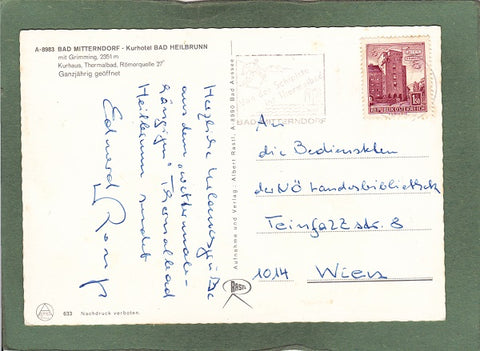 A-8983 BAD MITTERNDORF - Kurhotel BAD HEILBRUNN
mit Grimming, 2351 m
Kurhaus, Thermalbad, Römerquelle 27°
Ganzjährig geöffnet
Herzliche Urlaubsgrüße
aus dem
Thermalbad
Heilbrunn sendet
Eduard
Aufnahme und Verlag: Albert Rastl, A-8990 Bad Aussee
BAD MITTERNDORF
REPUBLIK ÖSTERREICH
An
die Bediensteten
der NÖ Landesbibliothek
Teinfaltstr. 8
1014 Wien
RASTL
633 Nachdruck verboten.